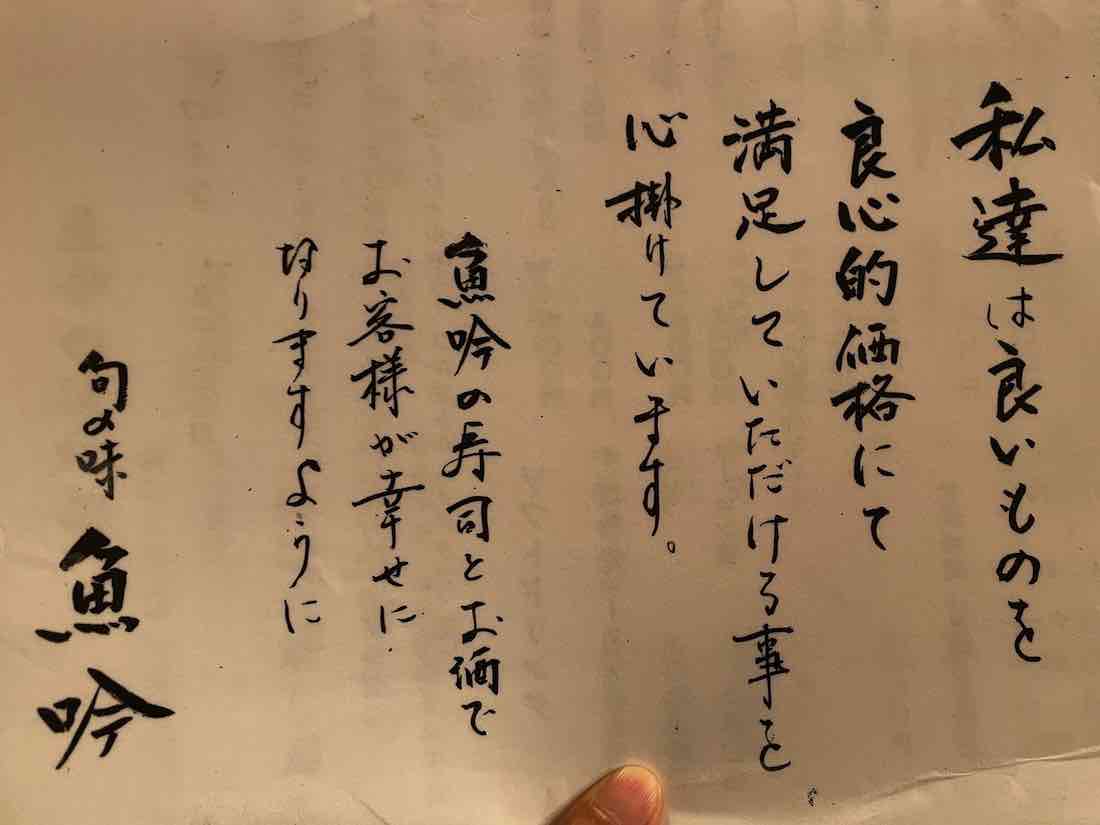 私達は良いものを
良心的価格にて
満足していただける事を
心掛けています。
魚吟の寿司とお価で
お客様が幸せに
なりますように
旬の味 魚吟